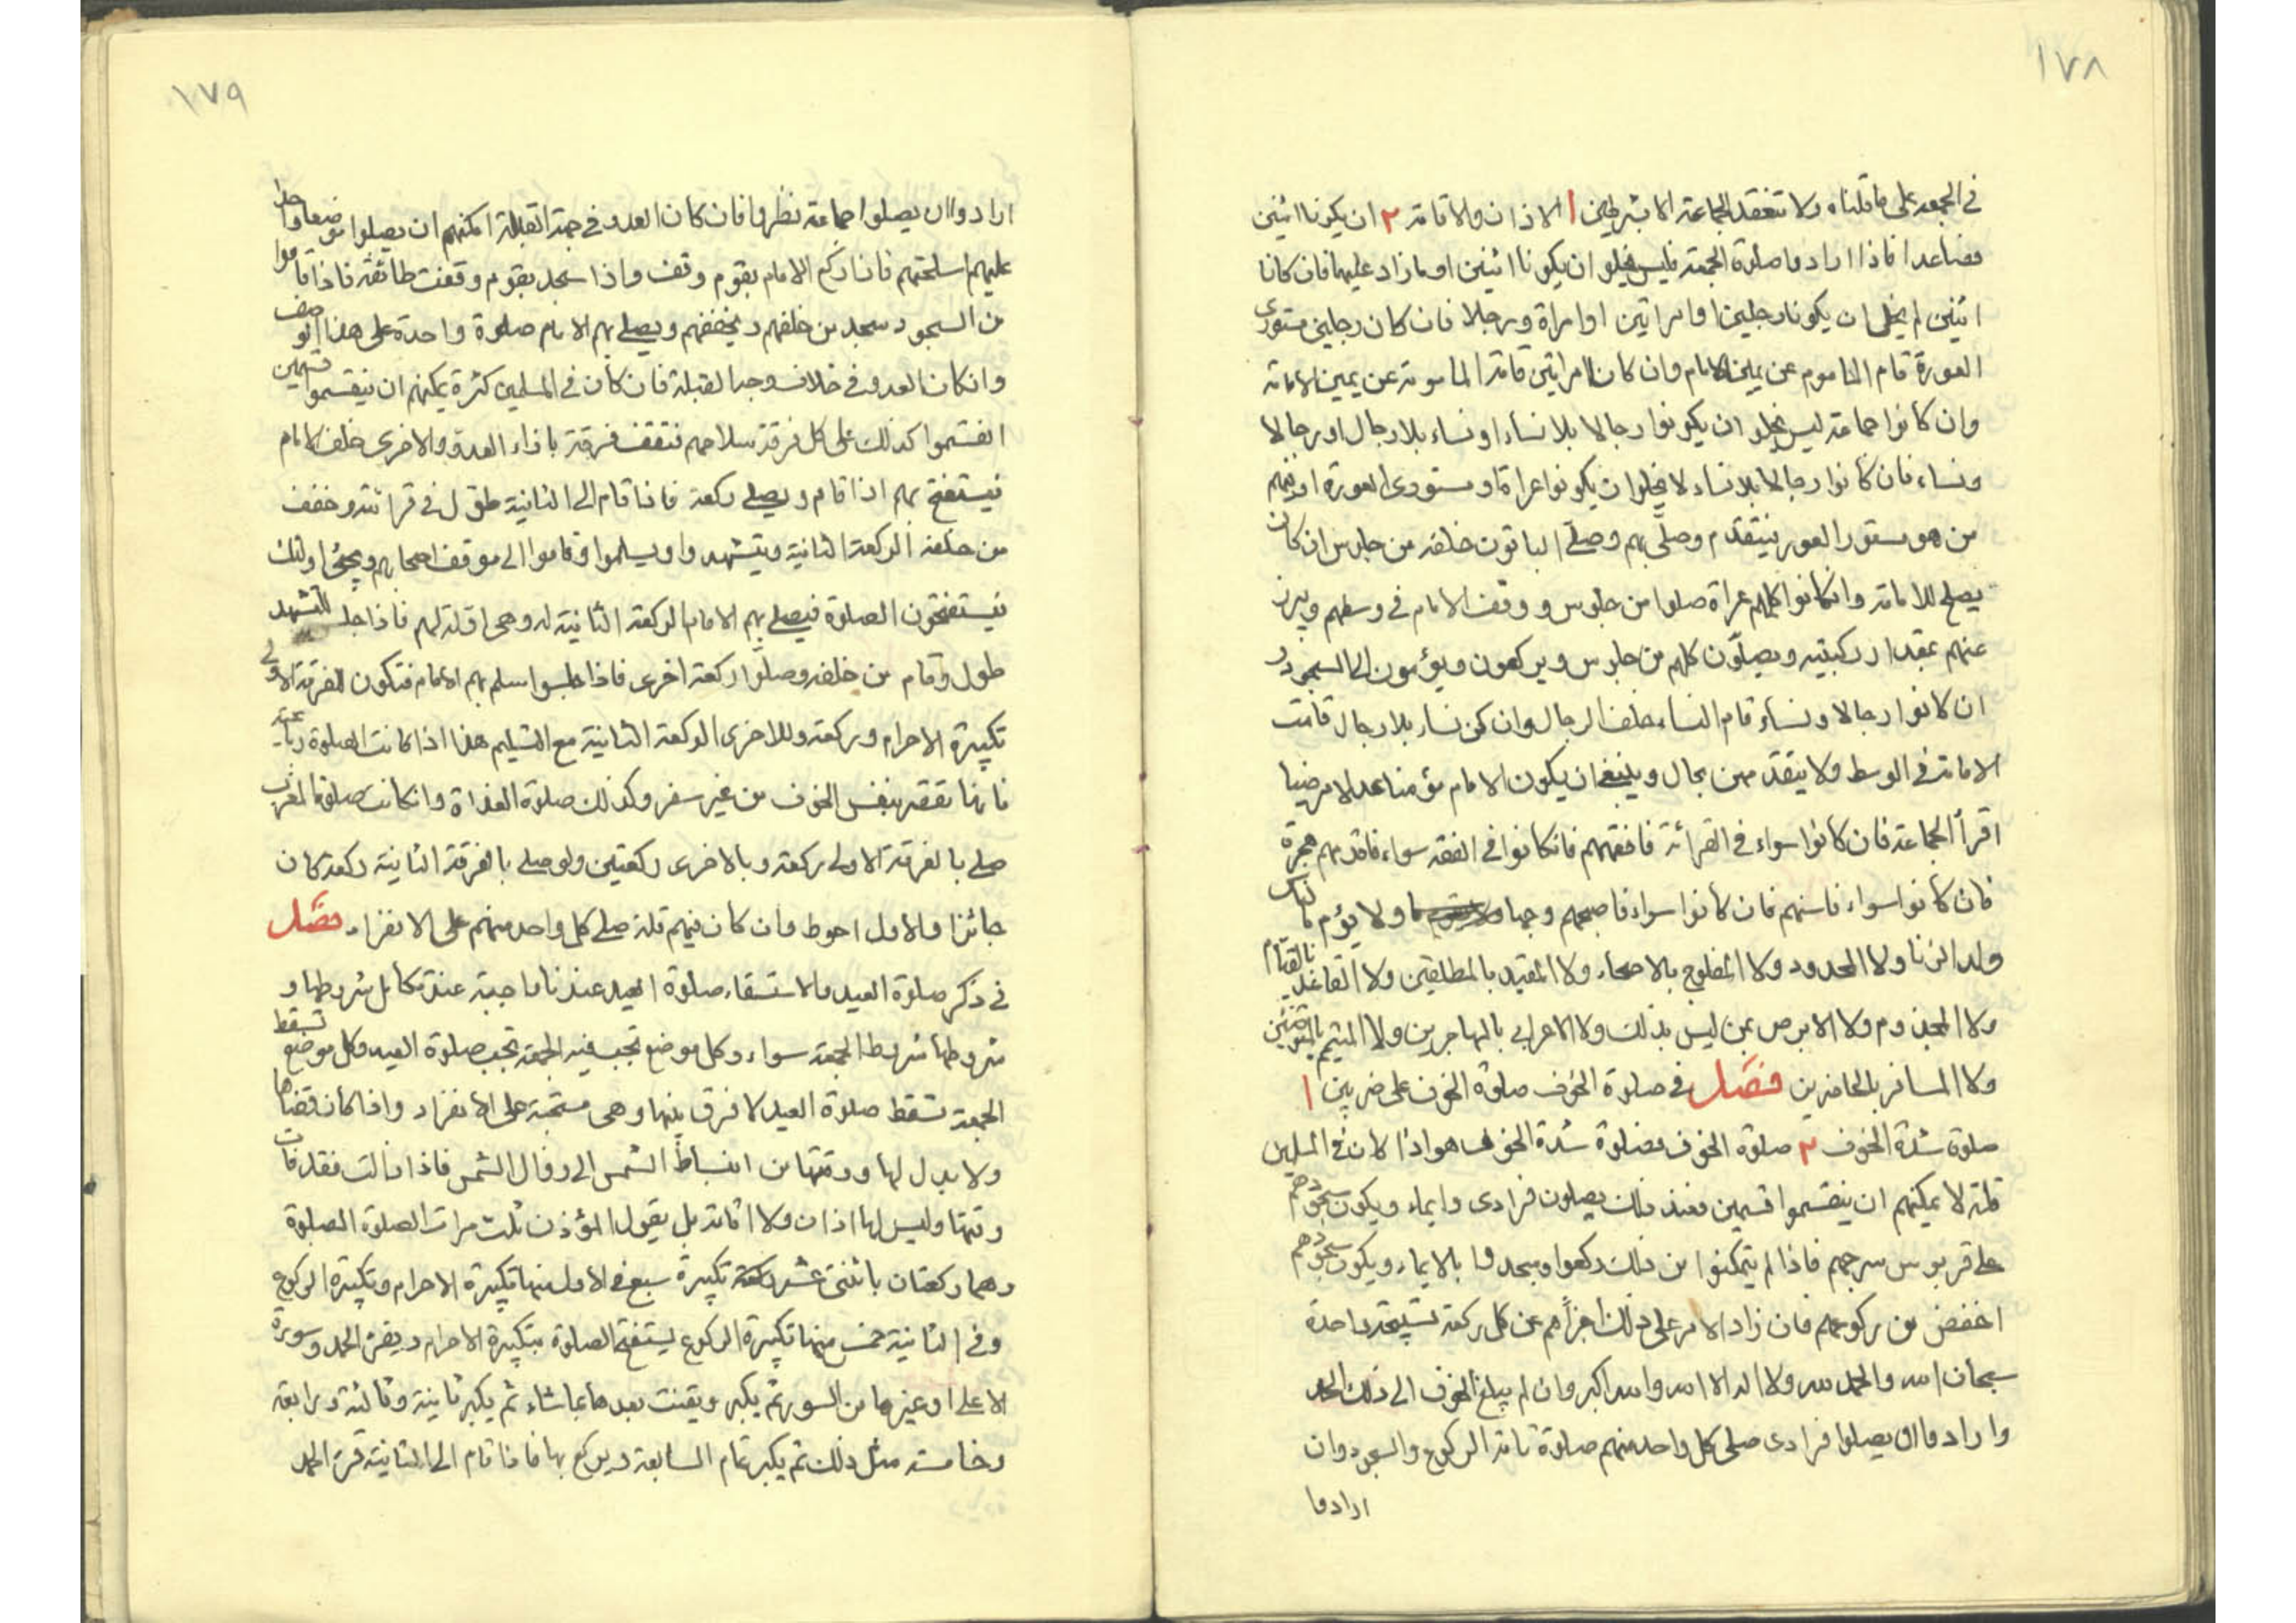 ١٧٨
في الجمعة على ما قلناه ولا تنعقد الجماعة الا بشرطين ١ الاذان والاقامة ٢ ان يكونا اثنين
فصاعدا فاذا ارادوا صلوة الجمعة فليس يخلو ان يكونا اثنين او ما زاد عليهما فان كانا
اثنين لم يخل ان يكونا رجلين او امراتين او امراة ورجلا فان كان رجلين مستورى
العورة قام الماموم عن يمين الامام وان كان امراتين قامة المامومة عن يمين الامامة
وان كانوا جماعة ليس يخلو ان يكونوا رجالا بلا نساء او نساء بلا رجال او رجالا
ونساء فان كانوا رجالا بلا نساء لا يخلو ان يكونوا عراة او مستورى العورة او فيهم
من هو مستور العورة فيتقدم وصلى بهم وصلى الباقون خلفه من جلوس ان كان
يصلح للامامة وانكانوا كلهم عراة صلوا من جلوس ووقف الامام في وسطهم ويبرز
عنهم بمقدار ركبتيه ويصلون كلهم من جلوس ويركعون ويؤمون الى السجود و
ان كانوا رجالا ونساء قام النساء خلف الرجال وان كن نساء بلا رجال قامت
الامامة في الوسط ولا يتقدمهن بحال وينبغي ان يكون الامام مؤمنا عدلا مرضيا
اقرأ الجماعة فان كانوا سواء في القرائة فافقههم فانكانوا في الفقه سواء فاقدمهم هجرة
فان كانوا سواء فاسنهم فان كانوا سواء فاصبحهم وجها ولا يؤم بالناس
ولد الزنا ولا المحدود ولا المفلوج بالاصحاء ولا المقيد بالمطلقين ولا القاعد بالقيام
ولا المجذوم ولا الابرص بمن ليس بذلك ولا الاعرابي بالمهاجرين ولا المتيمم بالمتوضئين
ولا المسافر بالحاضرين فصل في صلوة الخوف صلوة الخوف على ضربين ١
صلوة شدة الخوف ٢ صلوة الخوف فصلوة شدة الخوف هو اذا كان في المسلمين
قلة لا يمكنهم ان ينقسموا قسمين فعند ذلك يصلون فرادى وايماء ويكون سجودهم
على قربوس سرجهم فاذا لم يتمكنوا من ذلك ركعوا وسجدوا بالايماء ويكون سجودهم
اخفض من ركوعهم فان زاد الامر على ذلك اجزأهم عن كل ركعة تسبيحة واحدة
سبحان الله والحمد لله ولا اله الا الله والله اكبر وان لم يبلغ الخوف الى ذلك الحد
وارادوا ان يصلوا فرادى صلى كل واحد منهم صلوة تامة الركوع والسجود وان
ارادوا
١٧٩
ارادوا ان يصلوا جماعة نظروا فان كان العدو في جهة القبلة امكنهم ان يصلوا موضعا واحدا
عليهم اسلحتهم فاذا ركع الامام بقوم وقف واذا سجد بقوم وقفت طائفة فاذا قاموا
من السجود سجد من خلفهم ويصلي بهم الامام صلوة واحدة على هذا الوصف
وانكان العدو في خلاف وجه القبلة فان كان في المسلمين كثرة يمكنهم ان ينقسموا قسمين
انقسموا كذلك على كل فرقة سلاحهم فتقف فرقة باذاء العدو والاخرى خلف الامام
فيستفتح بهم اذا قام ويصلي ركعة فاذا قام الى الثانية طول في قرائته وخفف
من خلفه الركعة الثانية ويتشهدوا ويسلموا وقاموا الى موقف اصحابهم ويجئ اولئك
فيستفتحون الصلوة فيصلي بهم الامام الركعة الثانية له وهي اولة لهم فاذا جلس للتشهد
طول وقام من خلفه وصلوا ركعة اخرى فاذا جلسوا سلم بهم الامام فتكون للفرقة الاولى
تكبيرة الاحرام وركعة وللاخرى الركعة الثانية مع التسليم هذا اذا كانت الصلوة رباعية
فانها تقصر بنفس الخوف من غير سفر وكذلك صلوة الغداة وانكانت صلوة المغرب
صلى بالفرقة الاولى ركعة وبالاخرى ركعتين ولو صلى بالفرقة الثانية ركعة كان
جائزا والاول احوط وان كان فيهم قلة صلى كل واحد منهم على الانفراد فصل
في ذكر صلوة العيد والاستسقاء صلوة العيد عندنا واجبة عند تكامل شروطها و
شروطها شروط الجمعة سواء وكل موضع تجب فيه الجمعة تجب صلوة العيد وكل موضع تسقط
الجمعة تسقط صلوة العيد لا فرق بينها وهي مستحبة على الانفراد واذا كان قضاها
ولا بدل لها ووقتها من انبساط الشمس الى زوال الشمس فاذا زالت فقد فات
وقتها وليس لها اذان ولا اقامة بل يقول المؤذن ثلث مرات الصلوة الصلوة
وهما ركعتان باثنتى عشر تكبيرة سبع في الاول منها تكبيرة الاحرام وتكبيرة الركوع
وفي الثانية خمس منها تكبيرة الركوع يستفتح الصلوة بتكبيرة الاحرام ويقرئ الحمد وسورة
الاعلى او غيرها من السور ثم يكبر ويقنت بعدها بما شاء ثم يكبر ثانية وثالثة ورابعة
وخامسة مثل ذلك ثم يكبر تمام السابعة ويركع بها فاذا قام الى الثانية قرئ الحمد